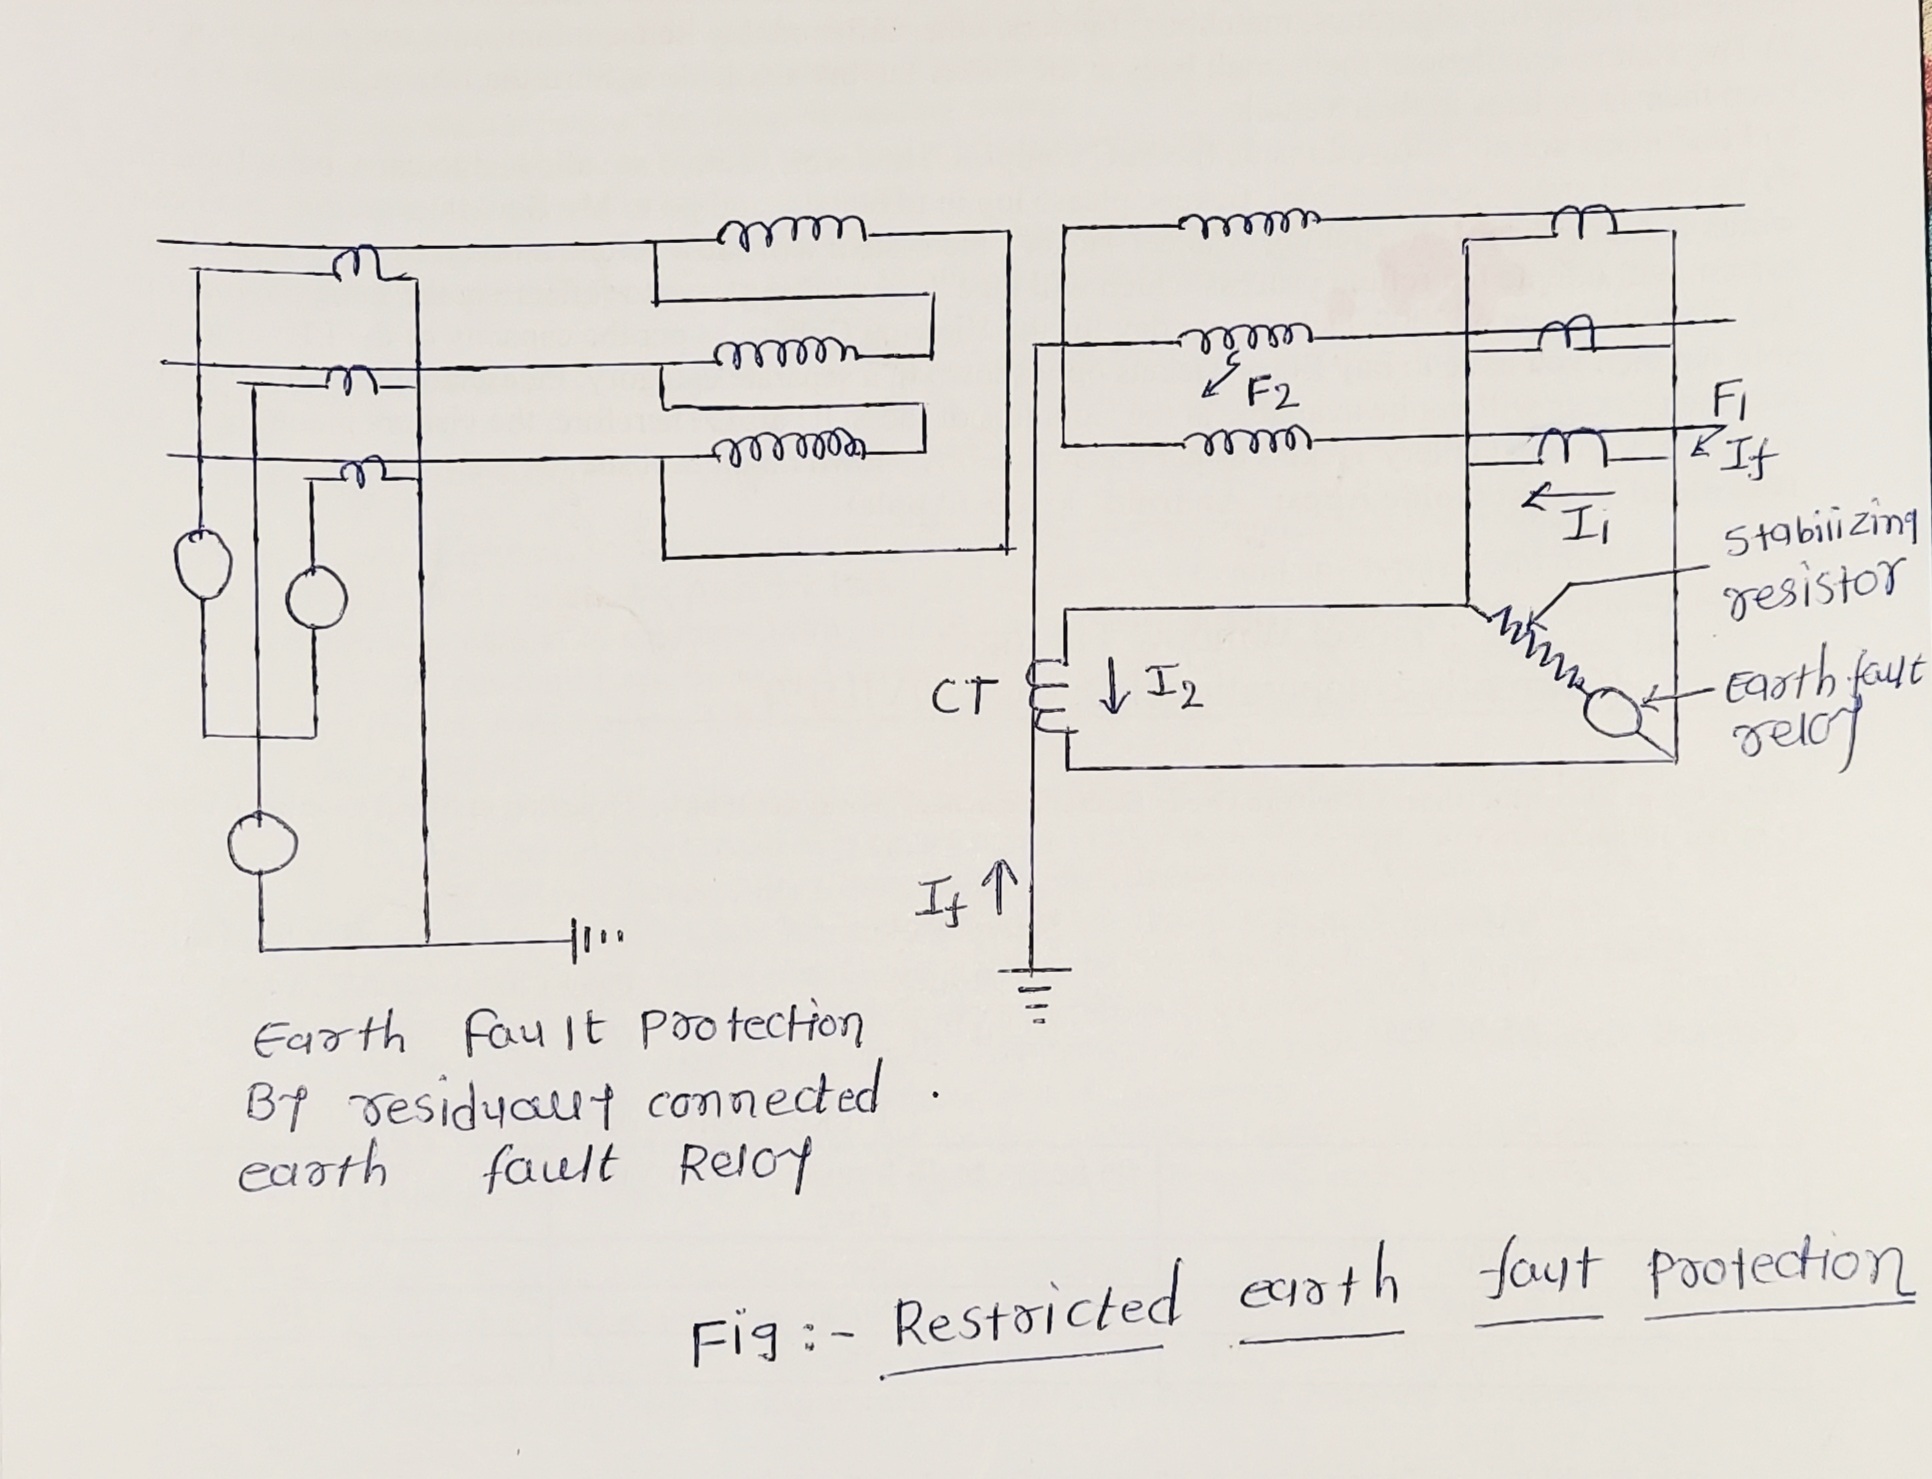 F2
F1
If
I1
Stabilizing
resistor
CT
I2
Earth fault
relay
If
Earth Fault Protection
By residually connected .
earth fault Relay
Fig :- Restricted earth faut Protection